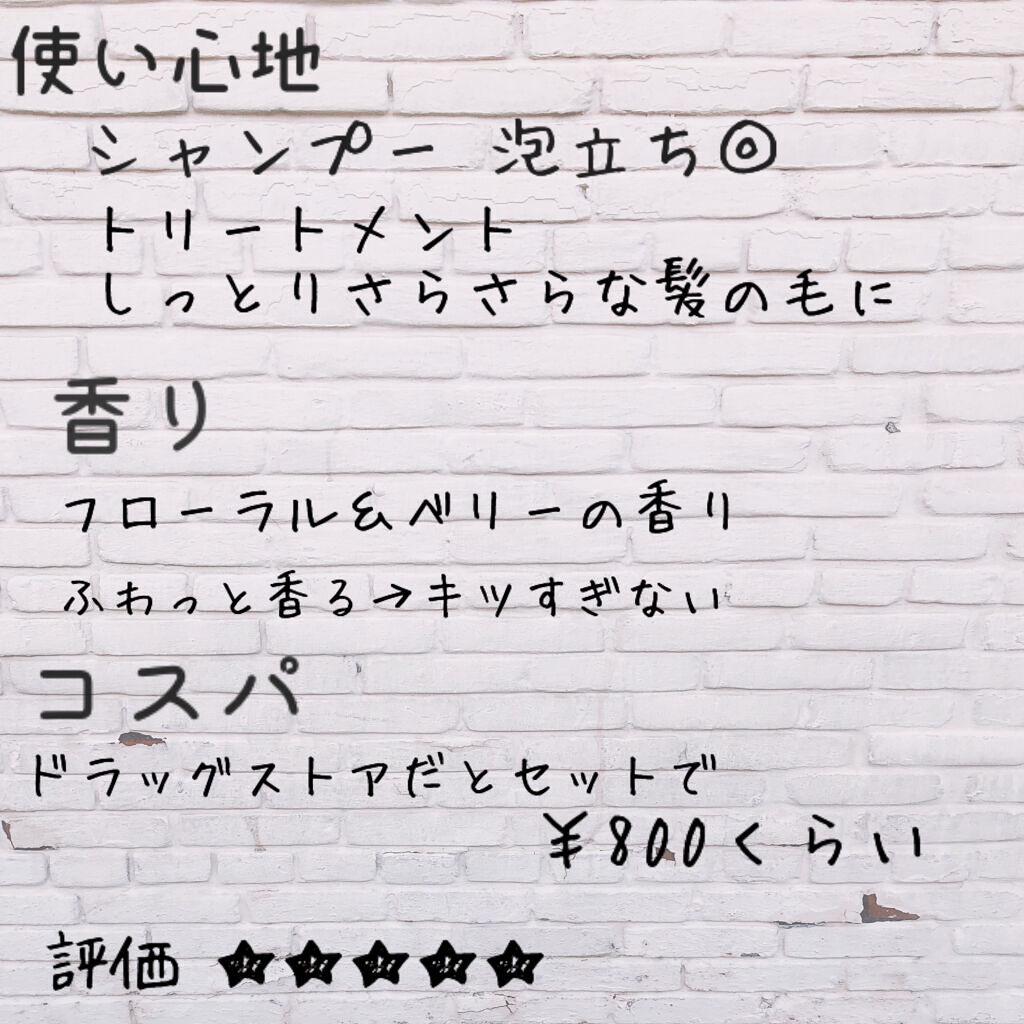 使い心地
シャンプー 泡立ち◎
トリートメント
しっとりさらさらな髪の毛に
香り
フローラル&ベリーの香り
ふわっと香る→キツすぎない
コスパ
ドラッグストアだとセットで
¥800くらい
評価 ★★★★★